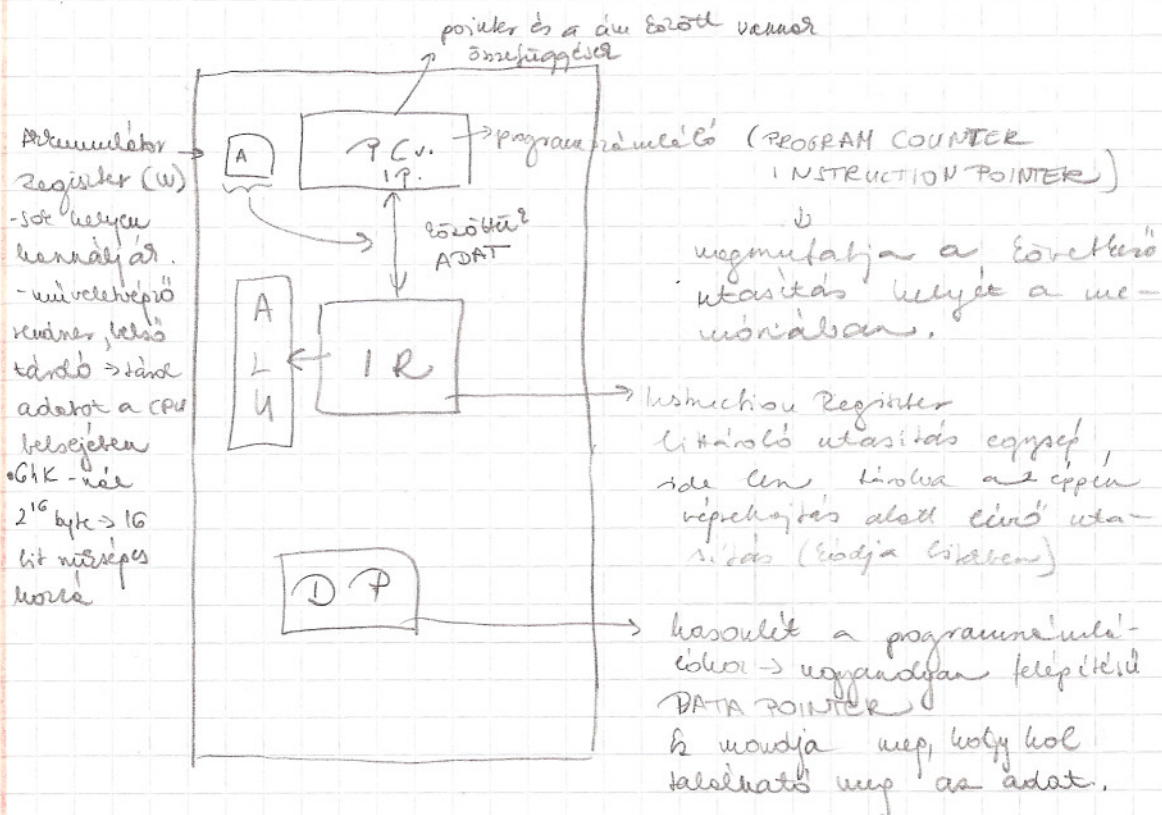 pointer és a cím között vannak
összefüggések
Akkumulátor
Regiszter (W)
-sok helyen
használják.
-műveletvégző
rendszer, belső
tároló → tárol
adatot a CPU
belsejében
•64K-nál
2^16 byte → 16
bit szükséges
hozzá
A
PC v.
IP.
programszámláló (PROGRAM COUNTER
INSTRUCTION POINTER)
megmutatja a következő
utasítás helyét a me-
móriában.
közöttük
ADAT
A
L
U
IR
Instruction Regiszter
utasítás egység,
ide lesz tárolva az éppen
végrehajtás alatt lévő uta-
sítás (kódja bitekben)
DP
hasonlít a programszámlá-
lóhoz → ugyanolyan felépítésű
DATA POINTER
Ez mondja meg, hogy hol
található meg az adat.